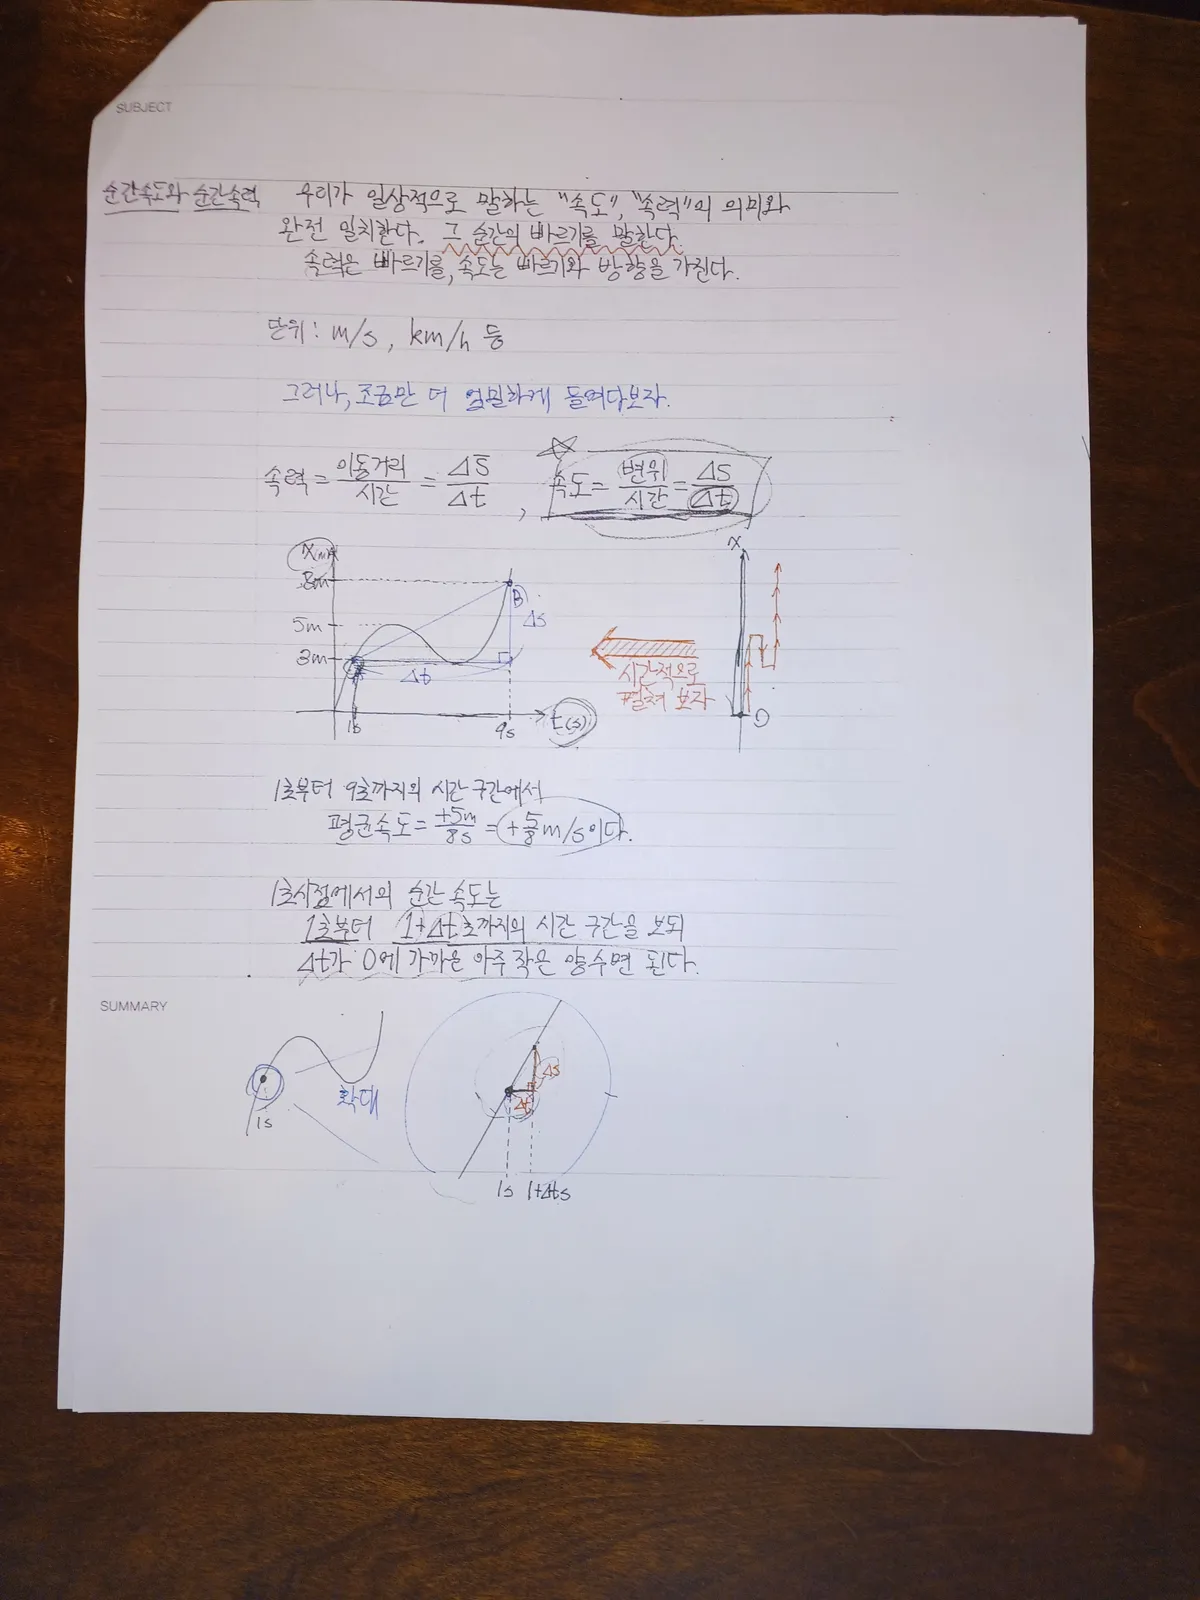 SUBJECT
순간속도와 순간속력 우리가 일상적으로 말하는 "속도", "속력"의 의미와
완전 일치한다. 그 순간의 빠르기를 말한다.
속력은 빠르기를, 속도는 빠르기와 방향을 가진다.
단위: m/s, km/h 등
그러나, 조금만 더 엄밀하게 들여다보자.
속력 = 이동거리/시간 = ΔS/Δt, 속도 = 변위/시간 = ΔS/Δt
x(m)
8m
B
Δs
5m
3m
Δt
1s
9s
t(s)
x
시간적으로
펼쳐 보자
O
1초부터 9초까지의 시간 구간에서
평균속도 = +5m/8s = +5/8 m/s이다.
1초시점에서의 순간 속도는
1초부터 1+Δt초까지의 시간 구간을 보되
Δt가 0에 가까운 아주 작은 양수면 된다.
SUMMARY
확대
1s
Δs
Δt
1s 1+Δts